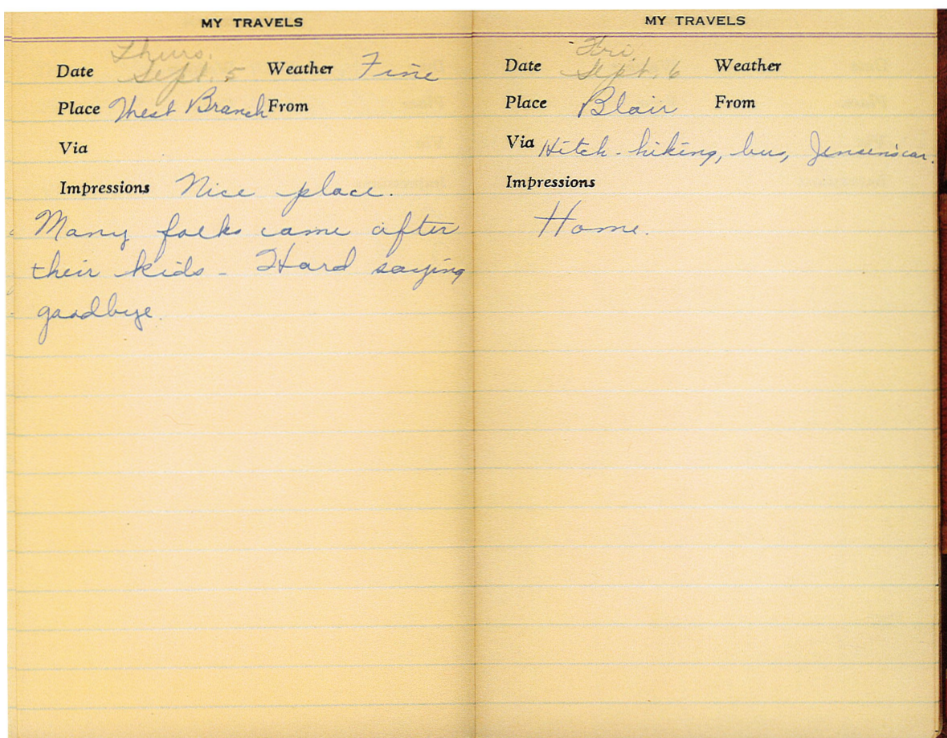 MY TRAVELS
Thurs.
Date Sept. 5 Weather Fine
Place West Branch From
Via
Impressions Nice place.
Many folks came after
their kids - Hard saying
goodbye.
MY TRAVELS
Fri.
Date Sept. 6 Weather
Place Blair From
Via Hitch-hiking, bus, Jensen's car.
Impressions
Home.